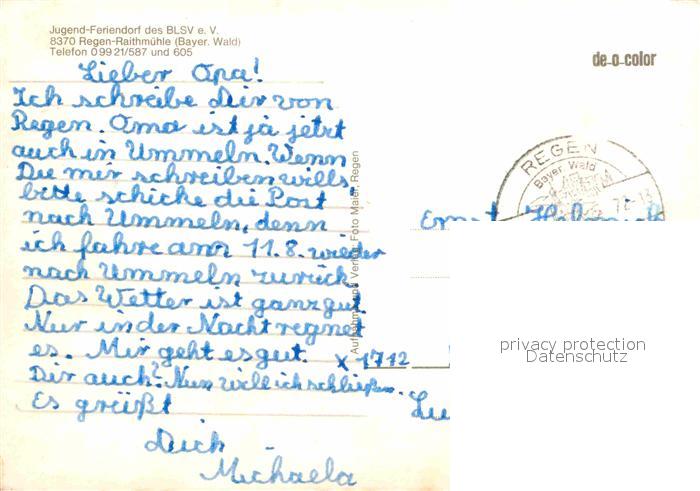 Jugend-Feriendorf des BLSV e. V.
8370 Regen-Raithmühle (Bayer. Wald)
Telefon 0 99 21/587 und 605
de-o-color
Lieber Opa!
Ich schreibe Dir von
Regen. Oma ist ja jetzt
auch in Ummeln. Wenn
Du mir schreiben wills,
bitte schicke die Post
nach Ummeln, denn
ich fahre am 11.8. wieder
nach Ummeln zurück.
Das Wetter ist ganz gut.
Nur in der Nacht regnet
es. Mir geht es gut.
Dir auch? Nun will ich schließen.
Es grüßt
Dich
Michaela
Aufnahme und Verlag: Foto Maier, Regen
X 1712
REGEN
Bayer. Wald
Ernst
privacy protection
Datenschutz